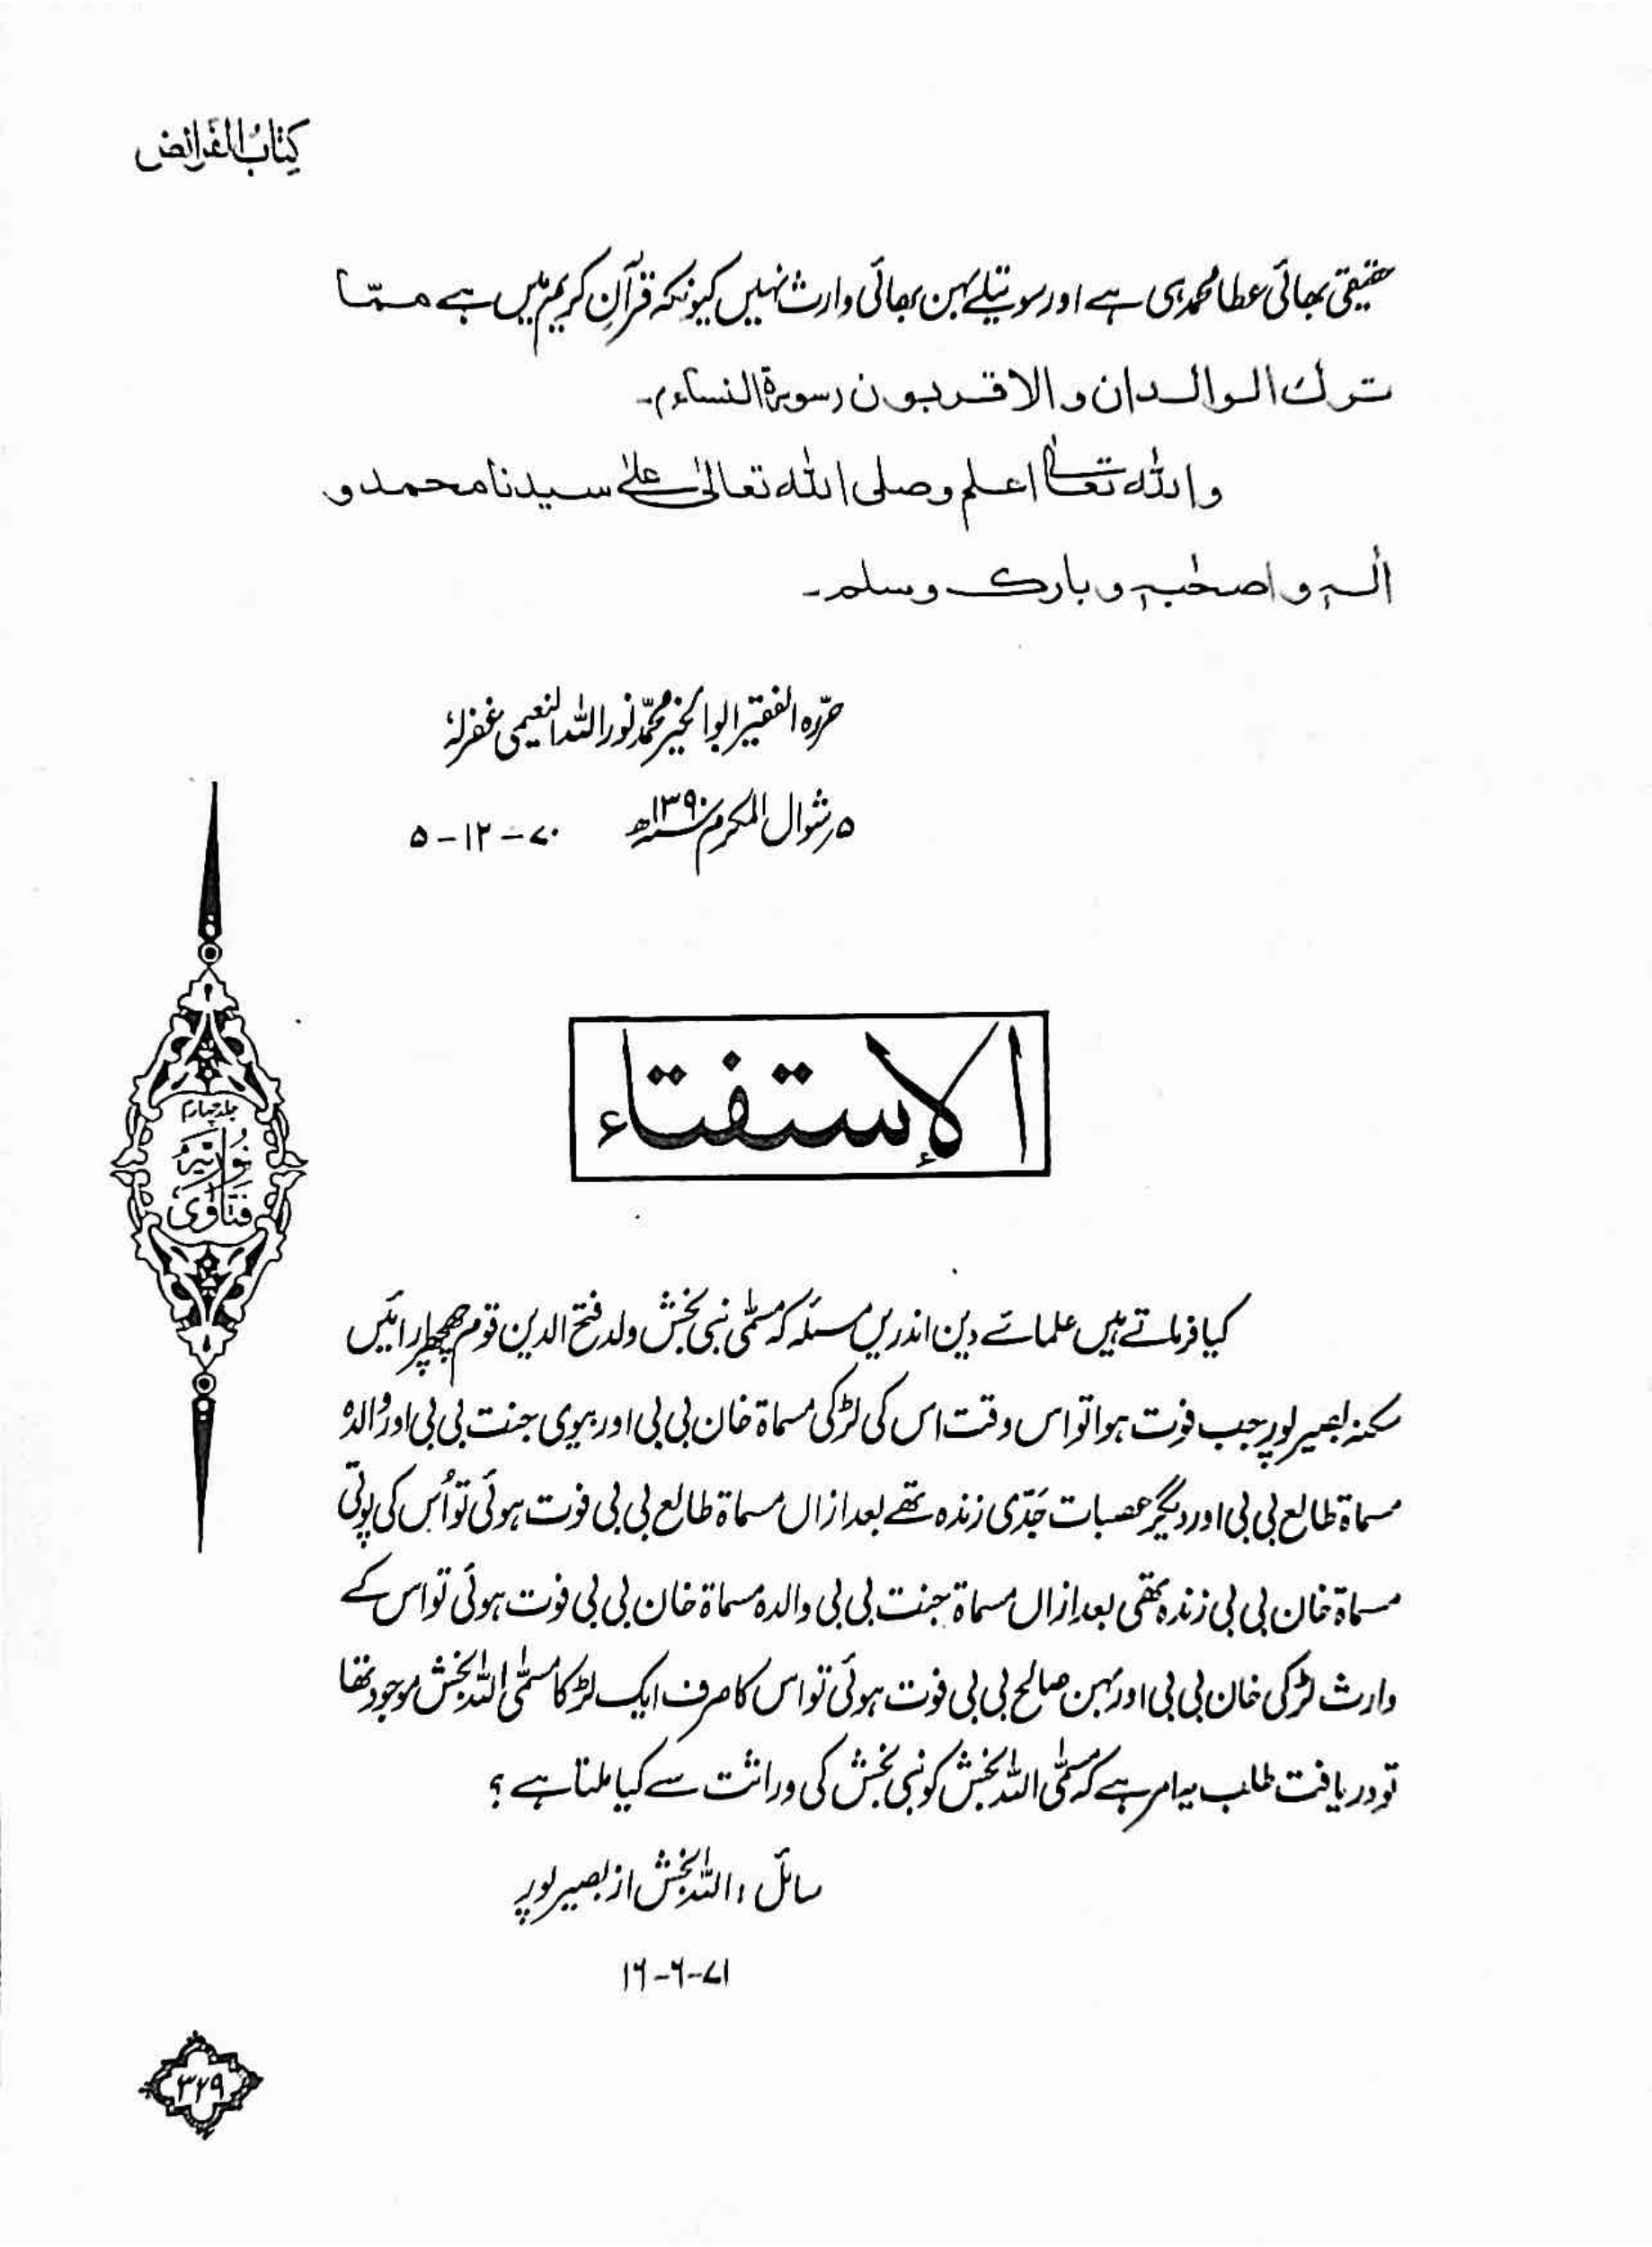 کتابُ الفرائض
حقیقی بھائی عطا محمد ہی ہے اور سوتیلے بہن بھائی وارث نہیں کیونکہ قرآن کریم میں ہے ممّا
ترك الوالدان والاقربون (سورۃ النساء)۔
واللہ تعالٰی اعلم وصلی اللہ تعالٰی علٰی سیدنا محمد و
اٰلہٖ و اصحٰبہٖ و بارك وسلم۔
حرّرہ الفقیر ابو الخیر محمّد نور اللہ النعیمی غفرلہٗ
۵ رشوال المکرم ۱۳۹۰ھ ۷۰-۱۲-۵
الاِستفتاء
جلد چہارم
نُوریّہ
فتاوٰی
کیا فرماتے ہیں علمائے دین اندریں مسئلہ کہ مسمّٰی نبی بخش ولد فتح الدین قوم چھچھر ارائیں
سکنہ بصیر پور جب فوت ہوا تو اس وقت اس کی لڑکی مسماۃ خان بی بی اور بیوی جنت بی بی اور والدہ
مسماۃ طالع بی بی اور دیگر عصبات جَدّی زندہ تھے بعد ازاں مسماۃ طالع بی بی فوت ہوئی تو اُس کی پوتی
مسماۃ خان بی بی زندہ تھی بعد ازاں مسماۃ جنت بی بی والدہ مسماۃ خان بی بی فوت ہوئی تو اس کے
وارث لڑکی خان بی بی اور بہن صالح بی بی فوت ہوئی تو اس کا صرف ایک لڑکا مسمّٰی اللہ بخش موجود تھا
تو دریافت طلب یہ امر ہے کہ مسمّٰی اللہ بخش کو نبی بخش کی وراثت سے کیا ملتا ہے ؟
سائل : اللہ بخش از بصیر پور
۷۱-۶-۱۶
۳۲۹